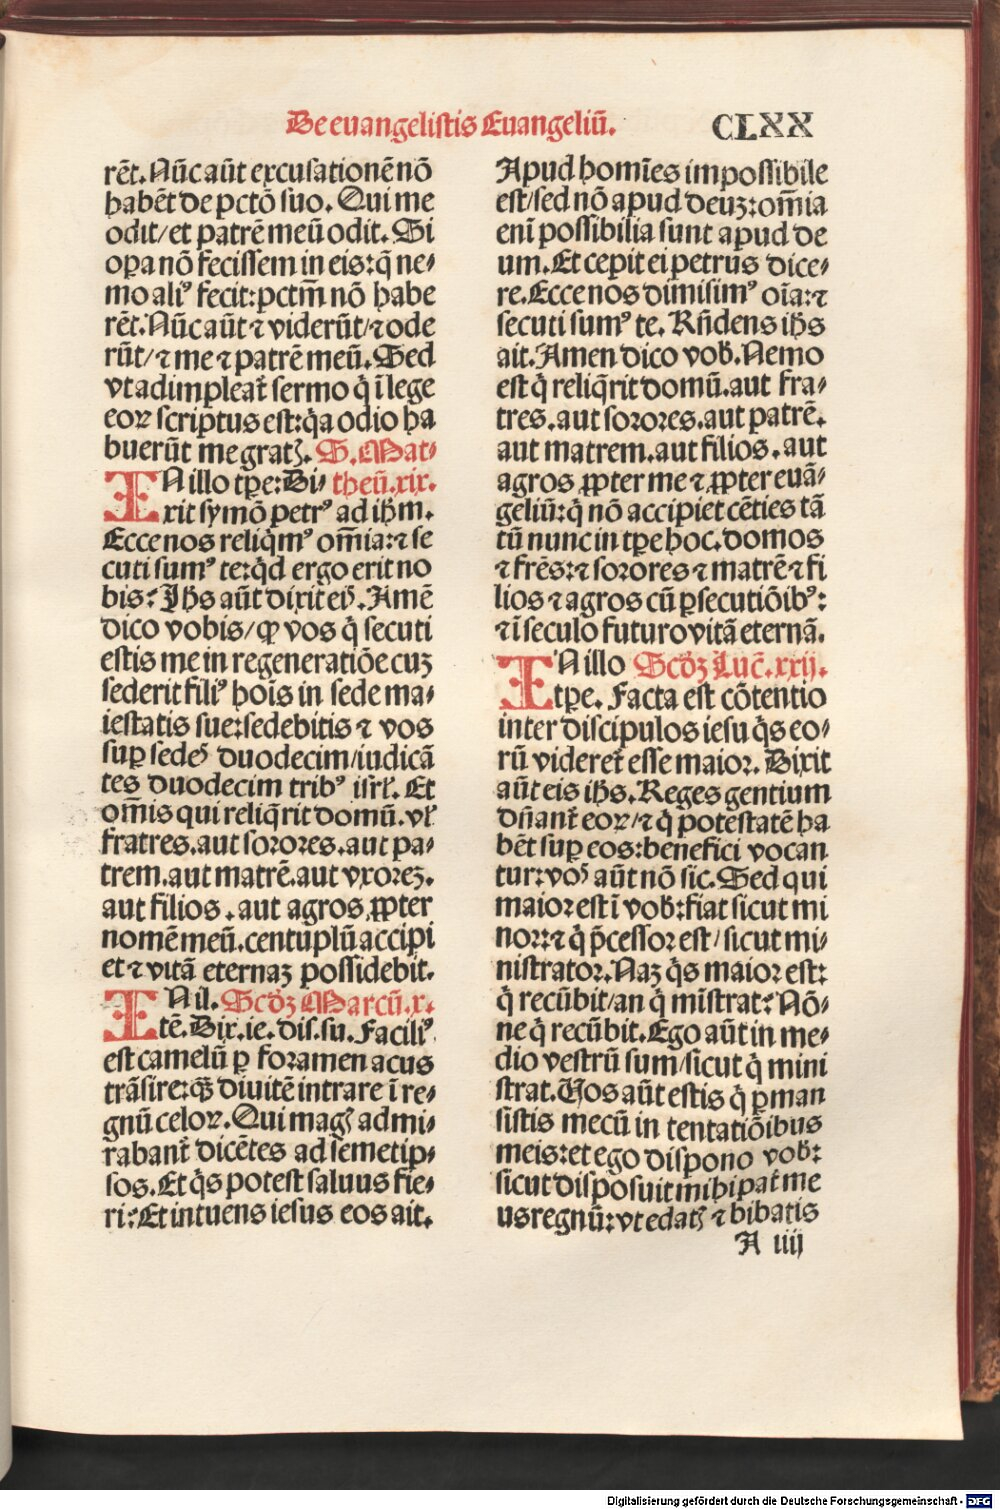 De euangelistis Euangeliū.
CLXX
rēt. Nūc aūt excusationē nō
habēt de pctō suo. Qui me
odit/et patrē meū odit. Si
oꝑa nō fecissem in eis:q̄ ne⸗
mo aliꝰ fecit:pctm̄ nō habe
rēt. Nūc aūt ⁊ viderūt/⁊ ode
rūt/⁊ me ⁊ patrē meū. Sed
vt adimpleat᷑ sermo q̇ ī lege
eoꝝ scriptus est:q̇a odio ha
buerūt me gratꝭ. S. Mat⸗
theū.xix.
IN illo tꝑe: Di⸗
xit symō petrꝰ ad ih̄m.
Ecce nos reliq̇mꝰ om̄ia:⁊ se
cuti sumꝰ te:q̇d ergo erit no
bis? Ih̄s aūt dixit eiꝭ. Amē
dico vobis/ꝙ vos q̇ secuti
estis me in regeneratiōe cuꝫ
sederit filiꝰ hoīs in sede ma⸗
iestatis sue:sedebitis ⁊ vos
suꝑ sedeꝭ duodecim/iudicā
tes duodecim tribꝰ isrl̄. Et
om̄is qui reliq̇rit domū.vl̄
fratres.aut sorores.aut pa⸗
trem.aut matrē.aut vxoreꝫ.
aut filios.aut agros ꝓpter
nomē meū.centuplū accipi
et ⁊ vitā eternaꝫ possidebit.
IN il. Scd̄ꝫ Marcū.x.
tē. Dix.ie.dis.su. Faciliꝰ
est camelū ꝑ foramen acus
trāsire:qꝫ̄ diuitē intrare ī re⸗
gnū celoꝝ. Qui magꝭ admi⸗
rabant᷑ dicētes ad semetip⸗
sos. Et q̇s potest saluus fie⸗
ri? Et intuens iesus eos ait.
Apud homīes impossibile
est/sed nō apud deuꝫ:om̄ia
enī possibilia sunt apud de
um. Et cepit ei petrus dice⸗
re. Ecce nos dimisimꝰ oīa:⁊
secuti sumꝰ te. Rn̄dens ih̄s
ait. Amen dico vob̄. Nemo
est q̇ reliq̇rit domū.aut fra⸗
tres.aut sorores.aut patrē.
aut matrem.aut filios.aut
agros ꝓpter me ⁊ ꝓpter euā⸗
geliū:q̇ nō accipiet cēties tā
tū nunc in tꝑe hoc.domos
⁊ frēs:⁊ sorores ⁊ matrē ⁊ fi
lios ⁊ agros cū ꝑsecutiōibꝰ:
⁊ ī seculo futuro vitā eternā.
IN illo Scd̄ꝫ Luc̄.xxij.
tꝑe. Facta est cōtentio
inter discipulos iesu q̇s eo⸗
rū videret᷑ esse maior. Dixit
aūt eis ih̄s. Reges gentium
dn̄ant᷑ eoꝝ/⁊ q̇ potestatē ha
bēt suꝑ eos:benefici vocan
tur:voꝭ aūt nō sic. Sed qui
maior est ī vob̄:fiat sicut mi
nor:⁊ q̇ p̄cessor est/sicut mi⸗
nistrator. Naꝫ q̇s maior est:
q̇ recūbit/an q̇ mīstrat? Nō⸗
ne q̇ recūbit. Ego aūt in me⸗
dio vestrū sum/sicut q̇ mini
strat. Vos aūt estis q̇ ꝑman
sistis mecū in tentatiōibus
meis:et ego dispono vob̄:
sicut disposuit mihi pat᷑ me
us regnū:vt edatꝭ ⁊ bibatis
A iiij
Digitalisierung gefördert durch die Deutsche Forschungsgemeinschaft - DFG